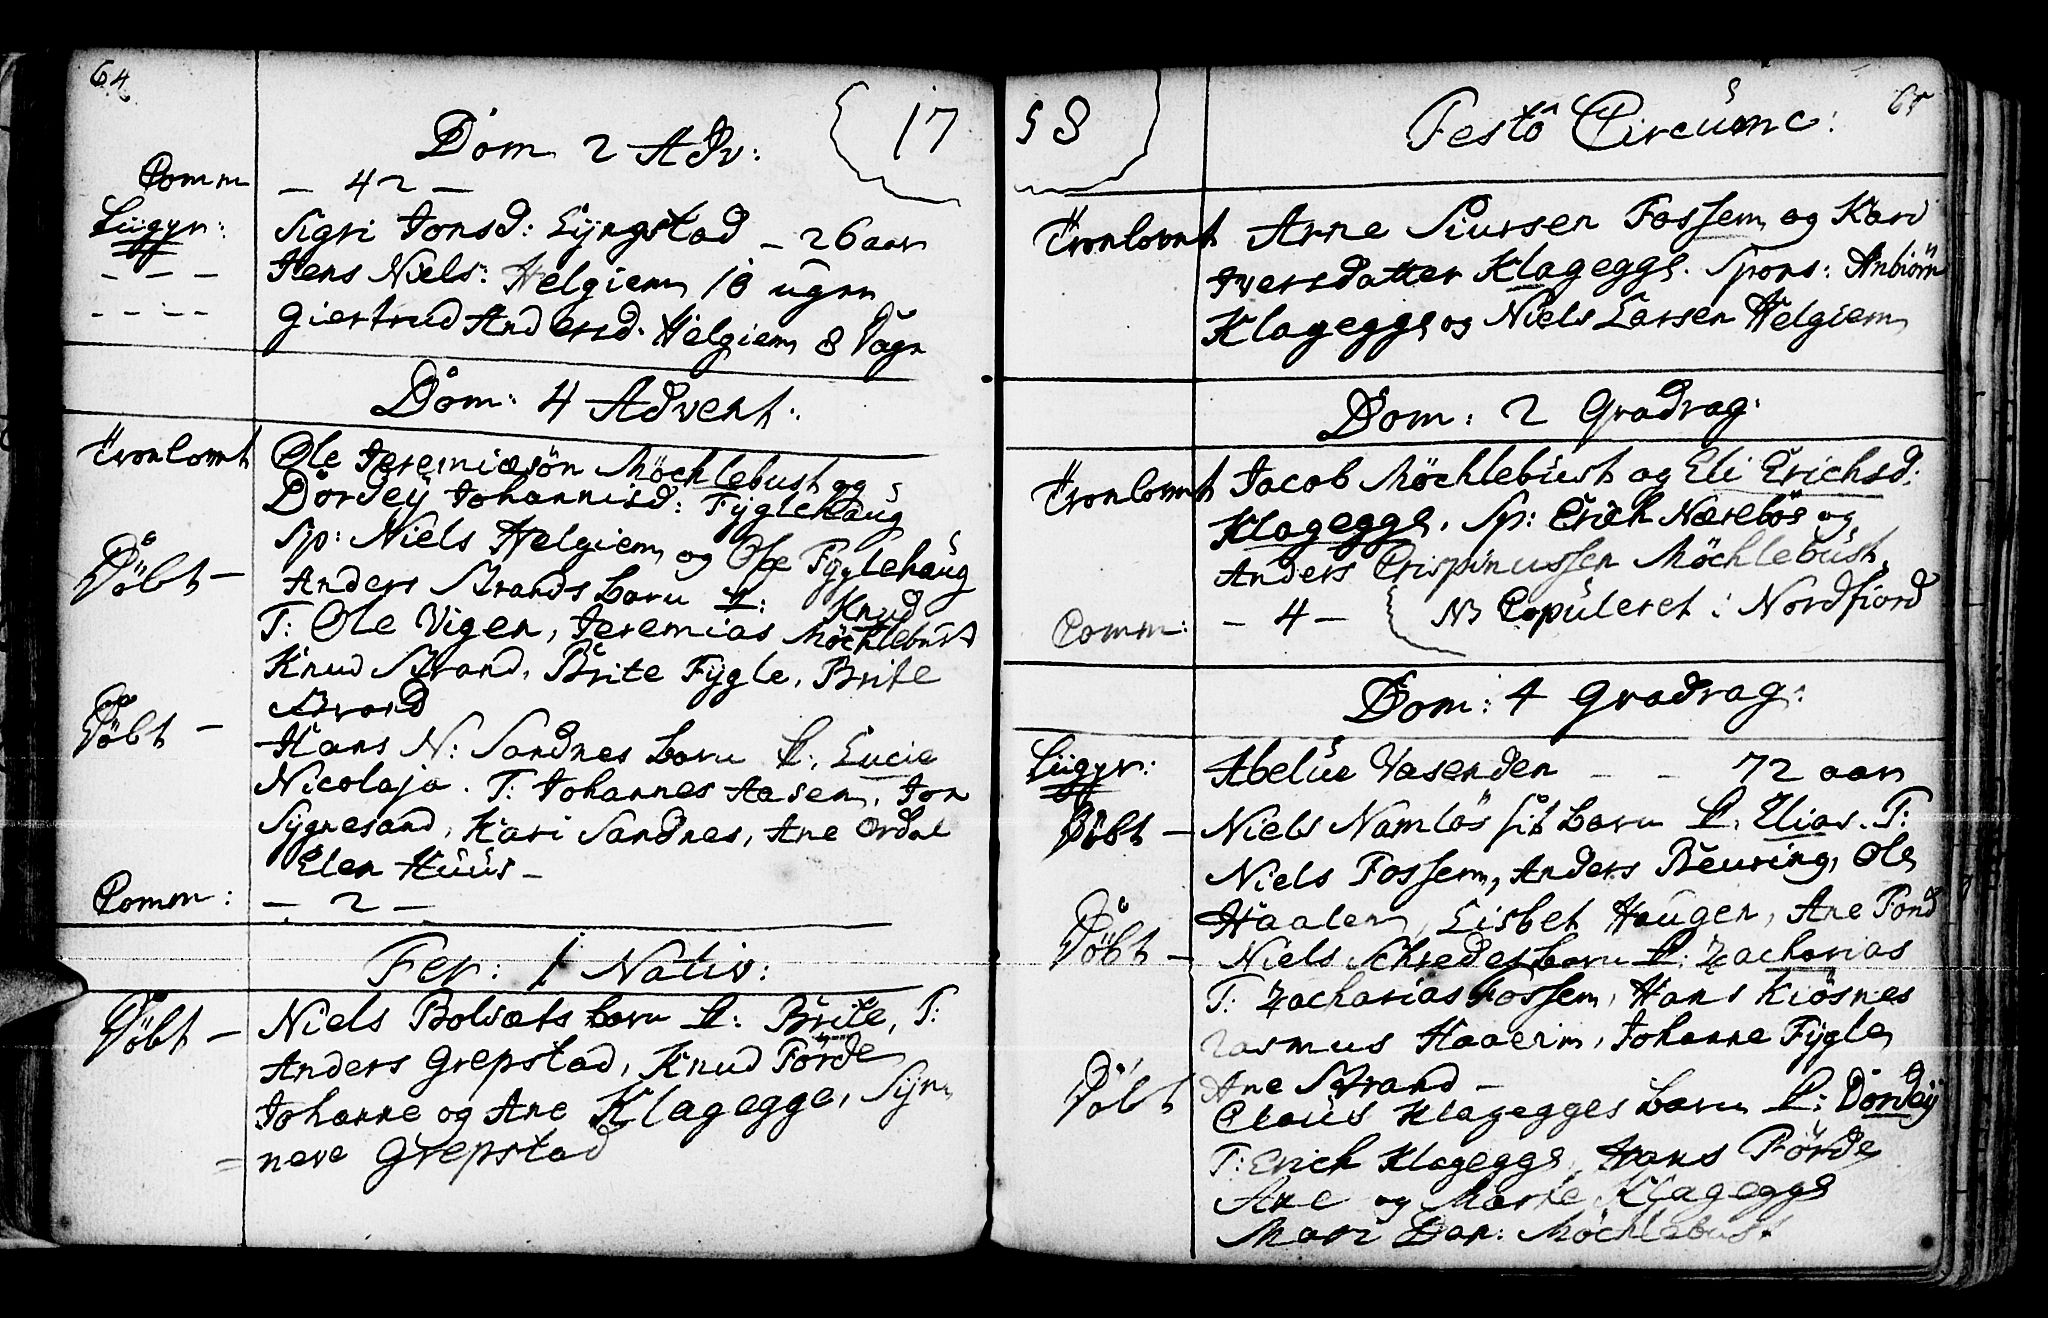 64
17
Dom 2 Adv:
Comm — 42 —
Liigpr: Sigri Jonsd: Lyngstad — 26 aar
— — — Jens Niels: Helgiem 18 ugrr
— — — Giertrud Andersd. Helgiem 8 Dagr
Dom: 4 Advent:
Troelovet Ole Jeremiæsön Möchlebust og
Dordey Johannisd: Fyglehaug
Sp: Niels Helgiem og Ole Fyglehaug
Döbt — Anders Strands barn N: Knud
T: Ole Vigen, Jeremias Möchlebust
Knud Strand, Brite Fygle, Brite
Strand
Döbt — Hans N: Sandnes barn N: Lucie
Nicolaja. T: Johannes Aasen, Jon
Sygnesand, Kari Sandnes, Ane Ordal
Elen Huus —
Comm: — 2 —
Fer: 1 Nativ:
Döbt — Niels Bolsæts barn N: Brite, T:
Anders Grepstad, Knud Förde
Johanne og Ane Klagegge, Syn
= neve Grepstad
58
65
Festo Circumc:
Troelovet Arne Siursen Fossem og Kari
Iversdatter Klagegge. Spons: Anbiörn
Klagegge og Niels Larsen Helgiem
Dom: 2 Qvadrag:
Troelovet Jacob Möchlebust og Eli Erichsd:
Klagegge. Sp: Erich Nærebös og
Anders Crispinussen Möchlebust
Comm: — 4 — NB Copuleret i Nordfiord
Dom: 4 Qvadrag:
Liigpr: Abelue Vasenden — — 72 aar
Döbt — Niels Namlös sit barn N. Elias. T:
Niels Fossem, Anders Beuring, Ole
Haalem, Lisbet Haugen, Ane Fond
Döbt — Niels Schredes barn N: Zacharias
T: Zacharias Fossem, Hans Kiösnes
Rasmus Haaeim, Johanne Fygle
Ane Strand —
Döbt Claus Klagegges barn N: Dordey
T: Erich Klagegge, Hans Förde
Ane og Marie Klagegge
Mari Dan: Möchlebust